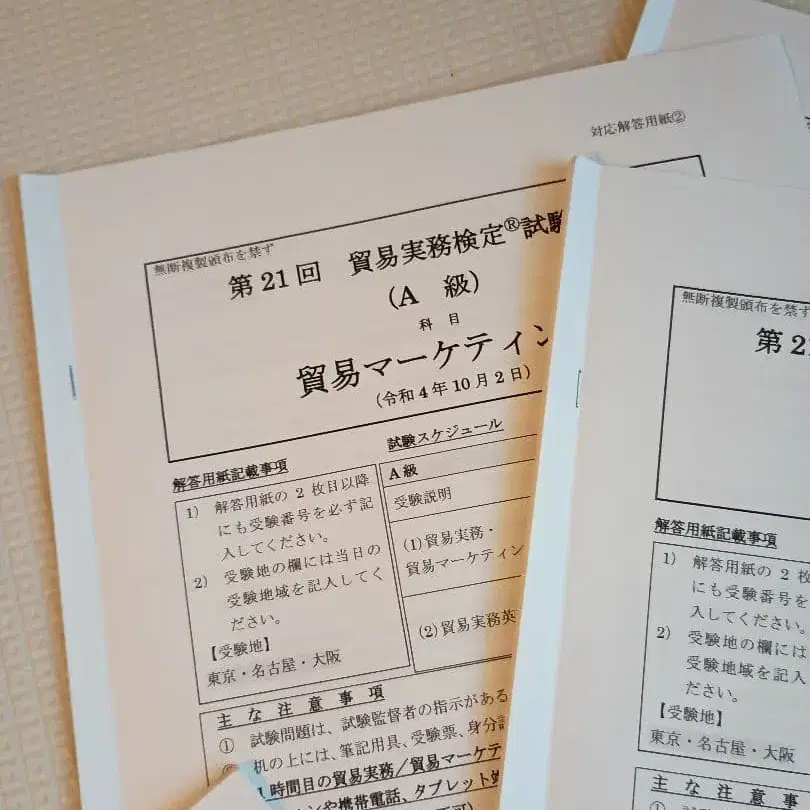 対応解答用紙②
無断複製頒布を禁ず
第21回 貿易実務検定®試験
(A 級)
科 目
貿易マーケティン
(令和4年10月2日)
解答用紙記載事項
1) 解答用紙の 2 枚目以降
にも受験番号を必ず記
入してください。
2) 受験地の欄には当日の
受験地域を記入してく
ださい。
【受験地】
東京・名古屋・大阪
試験スケジュール
A 級
受験説明
(1)貿易実務・
貿易マーケティン
(2)貿易実務英
主 な 注 意 事 項
① 試験問題は、試験監督者の指示がある
机の上には、筆記用具、受験票、身分
時間目の貿易実務/貿易マーケテ
ンや携帯電話、タブレット
無断複製頒布を禁ず
第 2
解答用紙記載事項
1) 解答用紙の 2 枚
にも受験番号を
入してください。
2) 受験地の欄には
受験地域を記入
ださい。
【受験地】
東京・名古屋・大阪
主 な 注 意 事